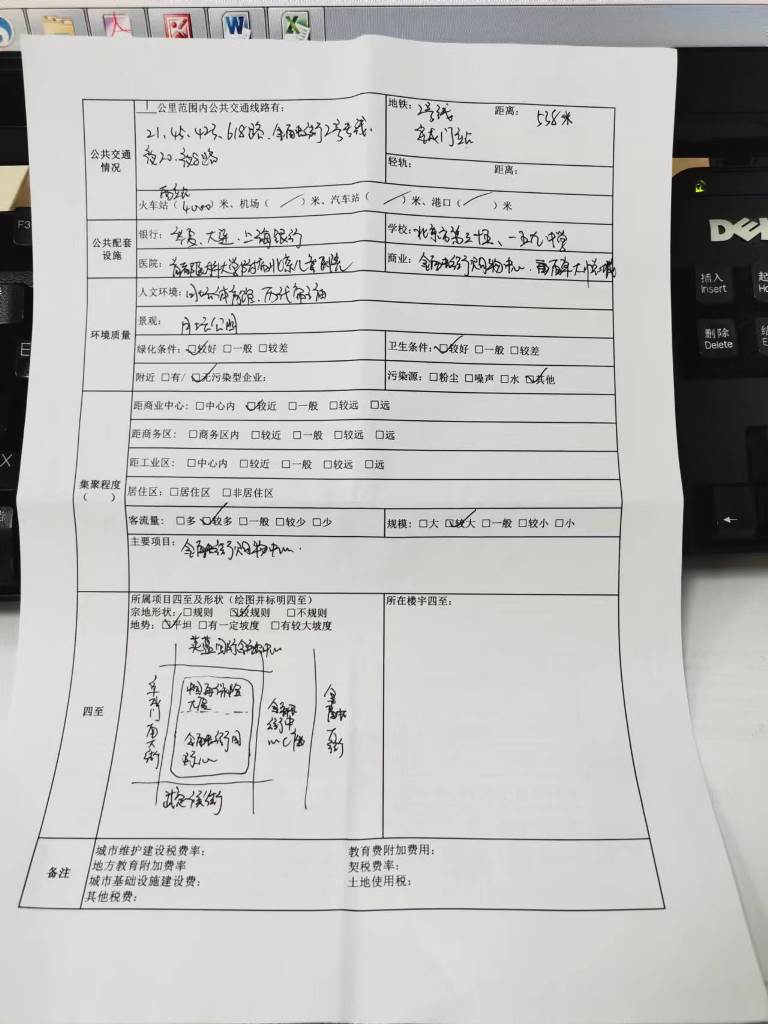 W
X
F3
E
X
DELL
插入
Insert
删除
Delete
←
公共交通
情况
1 公里范围内公共交通线路有:
21、45、423、618路、金融街2号专线、
夜20、夜8路
地铁: 2号线 距离: 538米
阜成门站
轻轨: 距离:
西站
火车站( 4000 )米、机场( / )米、汽车站( / )米、港口( / )米
公共配套
设施
银行: 华夏、大连、上海银行
学校: 北京市第三十五、一五九中学
医院: 首都医科大学附属北京儿童医院
商业: 金融街购物中心
环境质量
人文环境: 月坛体育馆、历代帝王庙
景观: 月坛公园
绿化条件: ☑较好 □一般 □较差
卫生条件: ☑较好 □一般 □较差
附近 □有/ ☑无污染型企业:
污染源: □粉尘 □噪声 □水 ☑其他
集聚程度
( )
距商业中心: □中心内 ☑较近 □一般 □较远 □远
距商务区: □商务区内 □较近 □一般 □较远 □远
距工业区: □中心内 □较近 □一般 □较远 □远
居住区: □居住区 □非居住区
客流量: □多 ☑较多 □一般 □较少 □少
规模: □大 ☑较大 □一般 □较小 □小
主要项目: 金融街购物中心.
四至
所属项目四至及形状(绘图并标明四至)
宗地形状: □规则 ☑较规则 □不规则
地势: ☑平坦 □有一定坡度 □有较大坡度
所在楼宇四至:
英蓝国际金融中心
阜成门南大街
中国再保险
大厦
金融街国
际中心
金融街中心C座
金融大街
武定侯街
备注
城市维护建设税费率:
教育费附加费用:
地方教育附加费率
契税费率:
城市基础设施建设费:
土地使用税:
其他税费: